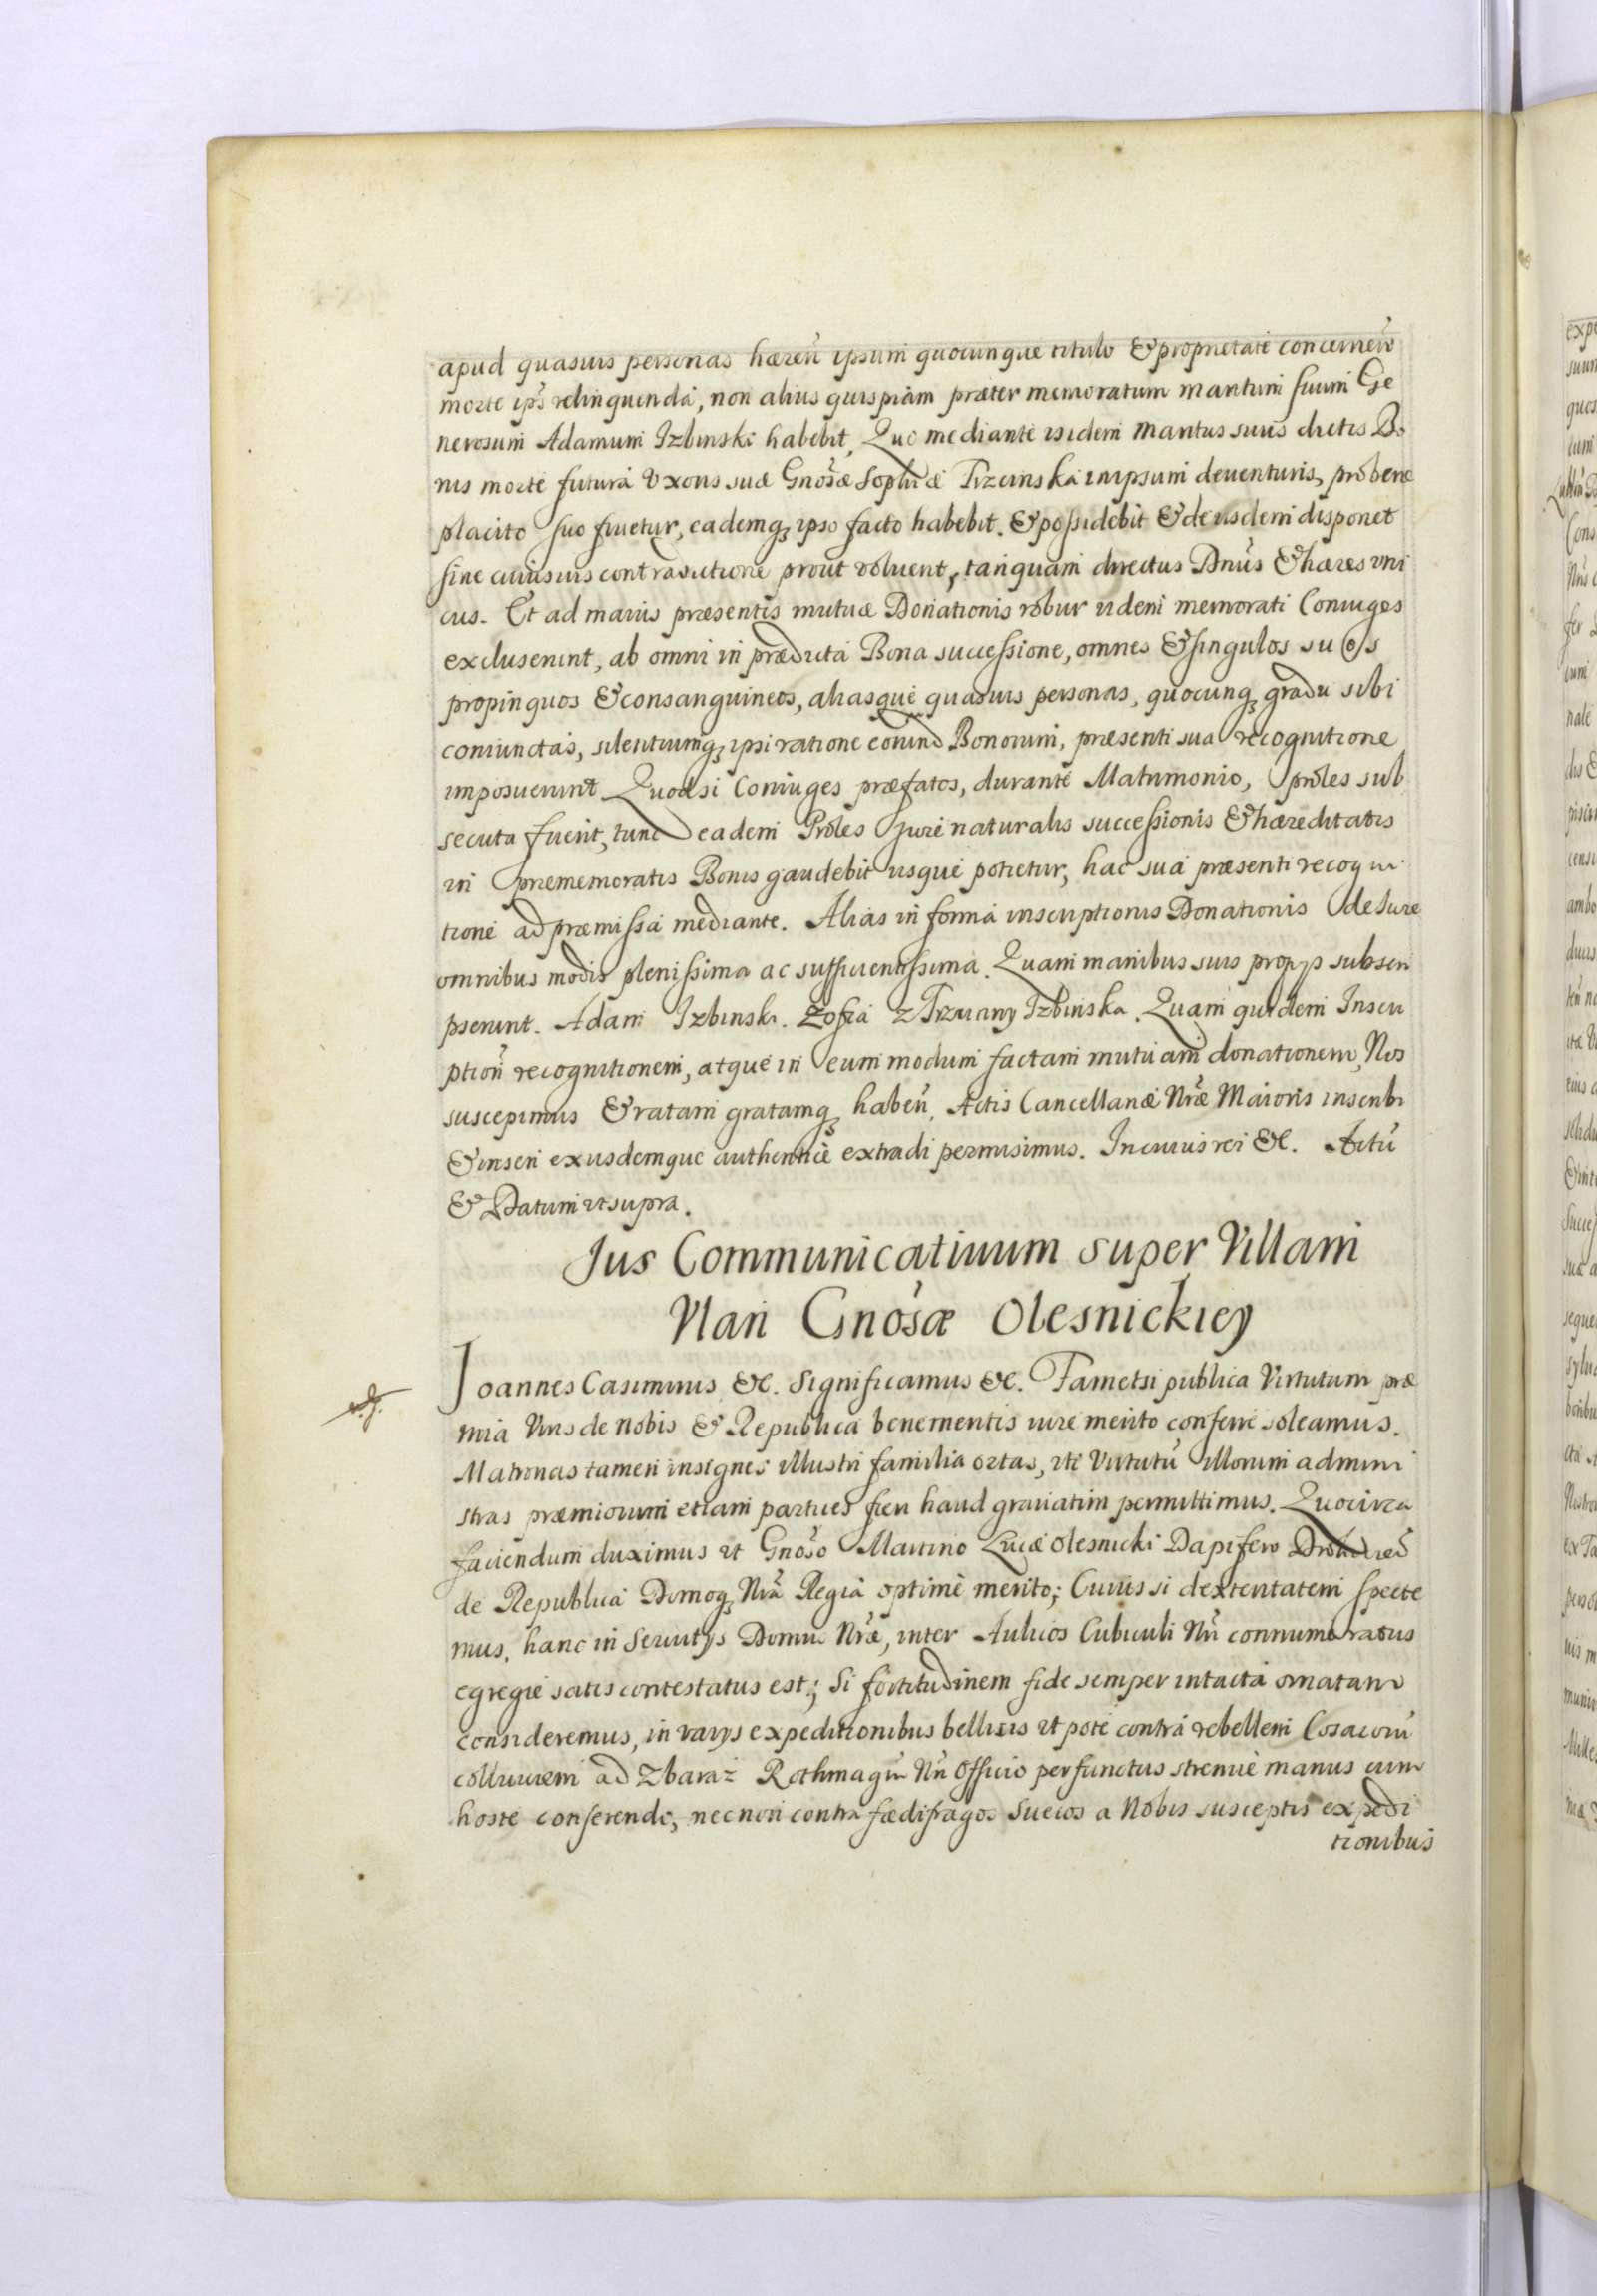 apud quasuis personas hæreń ipsum quocunque titulo & proprietate concerneń
morte ips̃ relinquenda, non alius quispiam præter memoratum maritum suum Ge
nerosum Adamum Izbinski habebit. Quo mediante isidem Maritus suus dictis Bo
nis morte futura Uxoris suæ Gnõsæ Sophiæ Trzcinska in ipsum deuenturis, pro bene
placito suo fruetur, eademq; ipso facto habebit. & possidebit & de iisdem disponet
sine cuiusuis contradictione prout voluerit, tanquam directus Dnũs & hæres vni
cus. Et ad maius præsentis mutuæ Donationis robur iidem memorati Coniuges
excluserint, ab omni in prædicta Bona successione, omnes & singulos suos
propinquos & consanguineos, aliasque quasuis personas, quocunq; gradu sibi
coniunctas, silentiumq; ipsi ratione eorund Bonorum, præsenti sua recognitione
imposuerunt. Quodsi Coniuges præfatos, durante Matrimonio, proles sub
secuta fuerit, tunc eadem Proles Jure naturalis successionis & hæreditatis
in præmemoratis Bonis gaudebit iisque potietur, hac sua præsenti recogni
tione ad præmissa mediante. Alias in forma inscriptionis Donationis de Jure
omnibus modis plenissima ac sufficientissima. Quam manibus suis proprys subscri
pserunt. Adam Izbinski. Zofia z Trzciany Izbinska. Quam quidem Inscri
ptioñ recognitionem, atque in eum modum factam mutuam donationem, Nos
suscepimus & ratam gratamq; habeñ, Actis Cancellariæ Nr̃æ Maioris inscribi
& inseri ex iisdemque authentice extradi permisimus. In cuius rei &c. Actũ
& Datum ut supra.
Jus Communicatiuum super Villam
Vlan Gnõsæ Olesnickiey
Joannes Casimirus &c. Significamus &c. Tametsi publica Virtutum præ
mia Viris de Nobis & Republica benemeritis iure merito conferre soleamus.
Matronas tamen insignes illustri familia ortas, uti Virtutũ illorum admini
stras præmiorum etiam partices fieri haud grauatim permittimus. Quocirca
faciendum duximus ut Gnõso Martino Lucæ Olesnicki Dapifero
de Republica Domoq; Nr̃a Regia optime merito; Cuius si dexteritatem specte
mus, hanc in Seruitys Domus Nr̃æ, inter Aulicos Cubiculi Nr̃i connumeratus
egregie satis contestatus est; Si fortitudinem fide semper intacta ornatam
consideremus, in varys expeditionibus bellicis ut pote contra rebellem Cosacorũ
colluuiem ad Zbaraż Rothmagri Nr̃i Officio perfunctus strenue manus cum
hoste conserendo, necnon contra fædifragos Suecos a Nobis susceptis expedi
tionibus